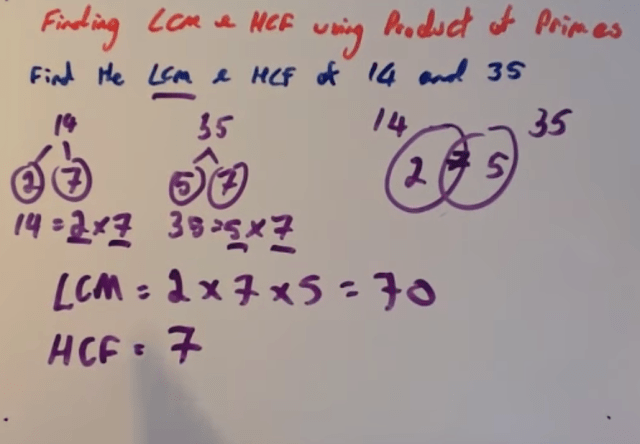 Finding LCM & HCF using Product of Primes
Find the LCM & HCF of 14 and 35
14 35 14 35
2 7 5 7 2 7 5
14 = 2 × 7 35 = 5 × 7
LCM = 2 × 7 × 5 = 70
HCF = 7